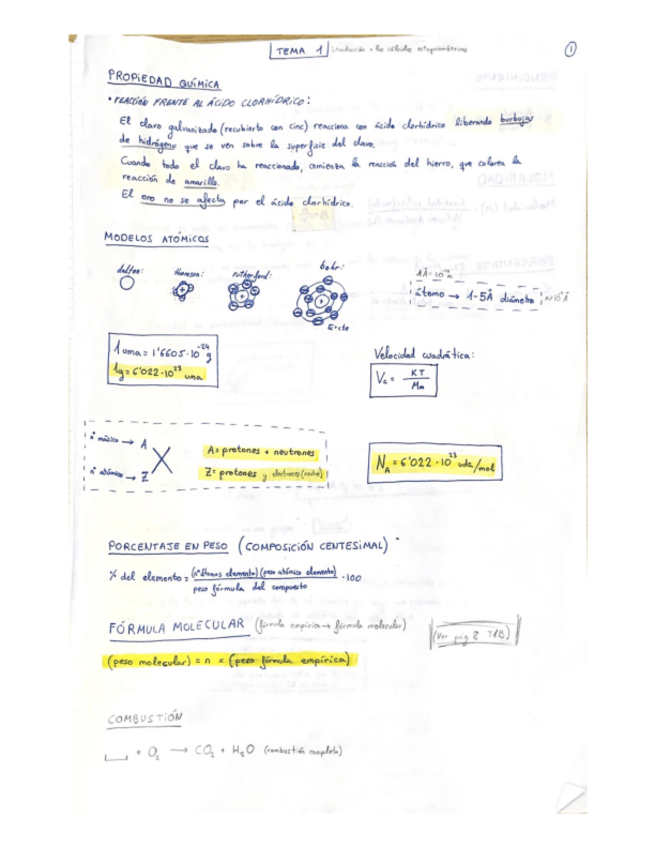 TEMA 1 introducción a los cálculos estequiométricos
1
PROPIEDAD QUÍMICA
• REACCIÓN FRENTE AL ÁCIDO CLORHÍDRICO:
El clavo galvanizado (recubierto con cinc) reacciona con ácido clorhídrico liberando burbujas
de hidrógeno que se ven sobre la superficie del clavo.
Cuando todo el clavo ha reaccionado, comienza la reacción del hierro, que colorea la
reacción de amarillo.
El oro no se afecta por el ácido clorhídrico.
MODELOS ATÓMICOS
dalton: thomson: rutherford: bohr:
E=cte
átomo → 1-5Å diámetro
1 uma = 1'6605·10⁻²⁴ g
1g = 6'022·10²³ uma
Velocidad cuadrática:
Vc = KT / Mm
nº másico → A
nº atómico → Z
X
A = protones + neutrones
Z = protones y electrones (neutro)
N_A = 6'022·10²³ uds/mol
PORCENTAJE EN PESO (COMPOSICIÓN CENTESIMAL)
% del elemento = (nº átomos elemento)(peso atómico elemento) / peso fórmula del compuesto ·100
FÓRMULA MOLECULAR (fórmula empírica → fórmula molecular)
(Ver pág 2 T1B)
(peso molecular) = n × (peso fórmula empírica)
COMBUSTIÓN
+ O₂ → CO₂ + H₂O (combustión completa)